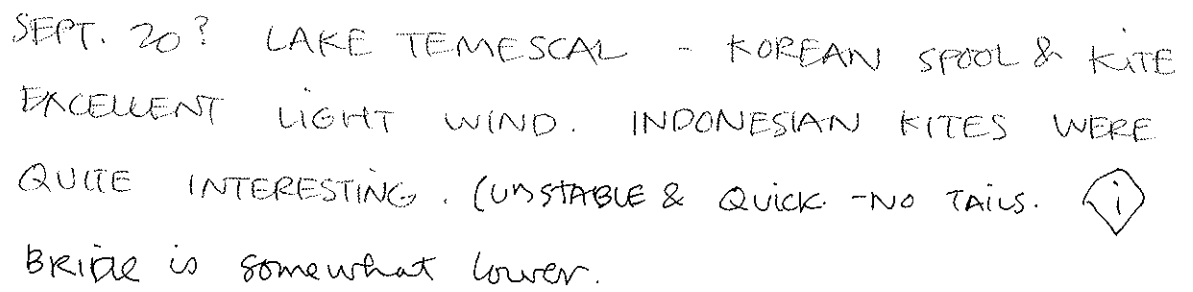 SEPT. 20? LAKE TEMESCAL - KOREAN SPOOL & KITE
EXCELLENT LIGHT WIND. INDONESIAN KITES WERE
QUITE INTERESTING. (UNSTABLE & QUICK - NO TAILS.
BRIDLE is somewhat lower.